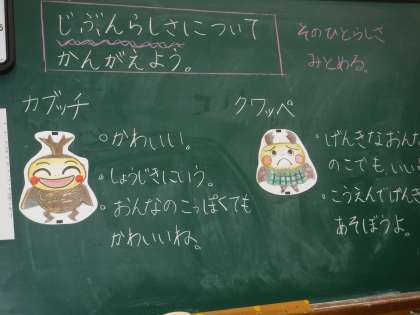 じぶんらしさについて
かんがえよう。
そのひとらしさ
みとめる。
カブッチ
かわいい。
しょうじきにいう。
おんなのこっぽくても
かわいいね。
クワッペ
げんきなおんな
のこでも、いい
こうえんでげんき
あそぼうよ。